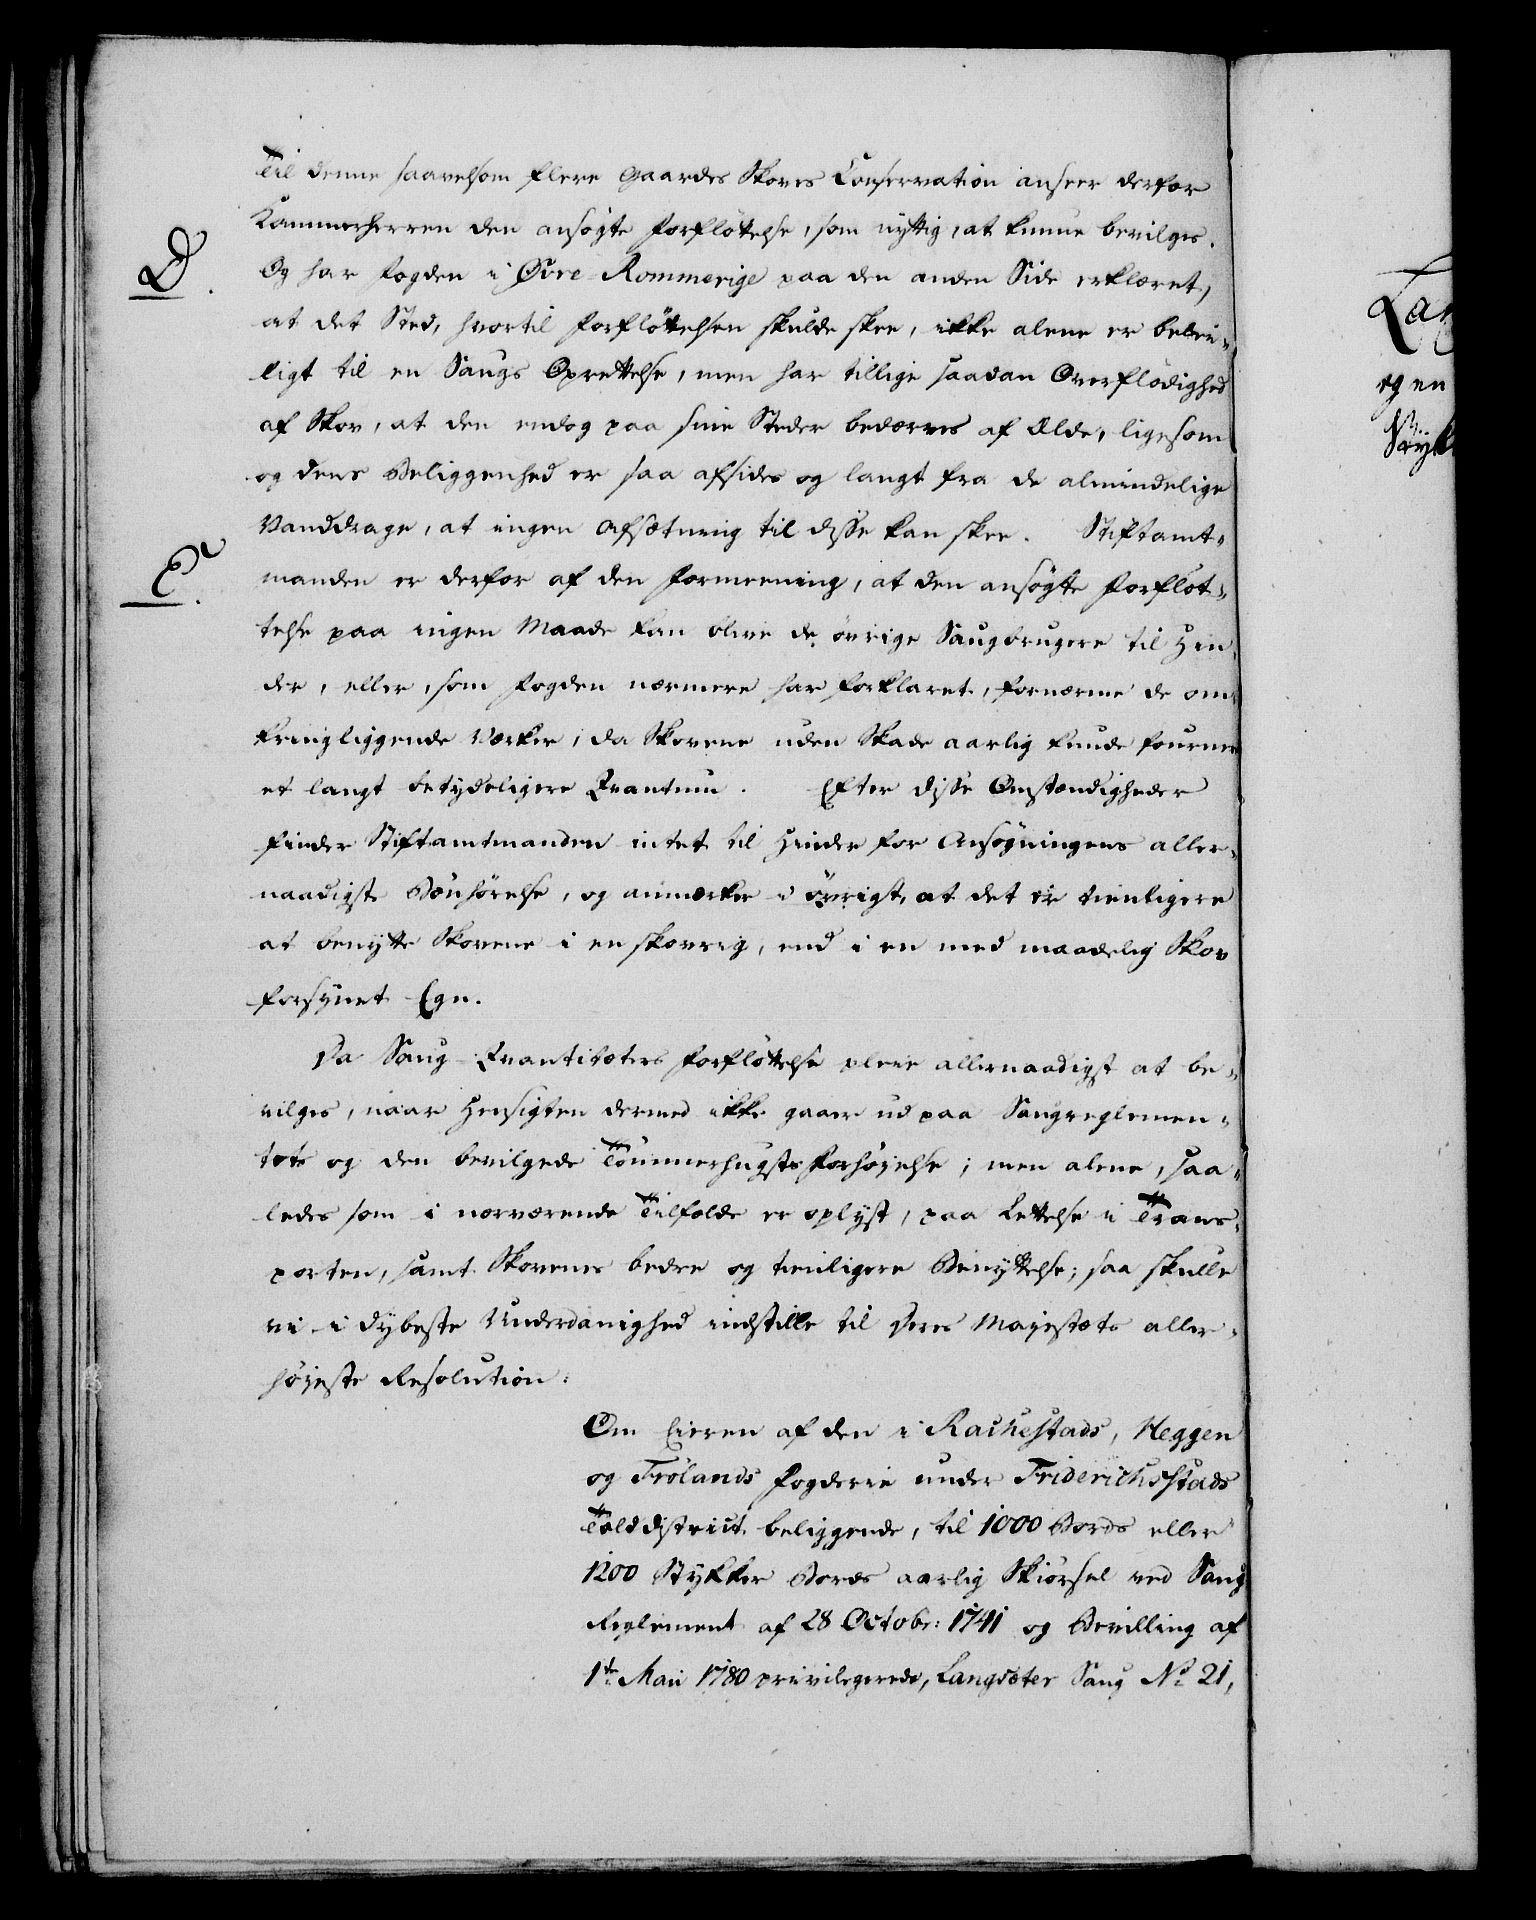 Til denne saavelsom flere Gaardes Skoves Conservation anseer derfor
Kammerherren den ansøgte Forfløttelse, som nyttig, at kunne bevilges.
D.
Og har Fogden i Øvre-Rommerige paa den anden Side erklæret,
at det Sted, hvortil Forfløttelsen skulde skee, ikke alene er belei-
ligt til en Saugs Oprettelse, men har tillige saadan Overflødighed
af Skov, at den endog paa sine Steder bedærves af Ælde, ligesom
og dens Beliggenhed er saa afsides og langt fra de almindelige
Vanddrage, at ingen Afsætning til disse kan skee. Stiftamt-
E.
manden er derfor af den Formeening, at den ansøgte Forfløt-
telse paa ingen Maade kan blive de øvrige Saugbrugere til Hin-
der, eller, som Fogden nærmere har forklaret, fornærme de om-
kringliggende Værker, da Skovene uden Skade aarlig kunde fournere
et langt betydeligere Qvantum. Efter disse Omstændigheder
finder Stiftamtmanden intet til Hinder for Ansøgningens aller-
naadigste Bønhørelse, og anmærker i øvrigt, at det er tienligere
at benytte Skovene i en skovrig, end i en med maadelig Skov
forsynet Egn.
Da Saug-Qvantiteters Forfløttelse pleie allernaadigst at be-
vilges, naar Hensigten dermed ikke gaaer ud paa Saugreglemen-
tets og den bevilgede Tømmerhugsts Forhøjelse; men alene, saa-
ledes som i nærværende Tilfælde er oplyst, paa Lettelse i Trans-
porten, samt Skovenes bedre og tienligere Benyttelse; saa skulle
vi i dybeste Underdanighed indstille til Deres Majestæts aller-
høieste Resolution:
Om Eieren af den i Rachestads, Heggen
og Frølands Fogderie under Friderichsstads
Tolddistrict beliggende, til 1000 Bords eller
1200 Stykker Bords aarlig Skiørsel ved Saug
Reglement af 28 Octobr: 1741 og Bevilling af
1te Maii 1780 privilegerede, Langsæter Saug No 21,
Lan
og en